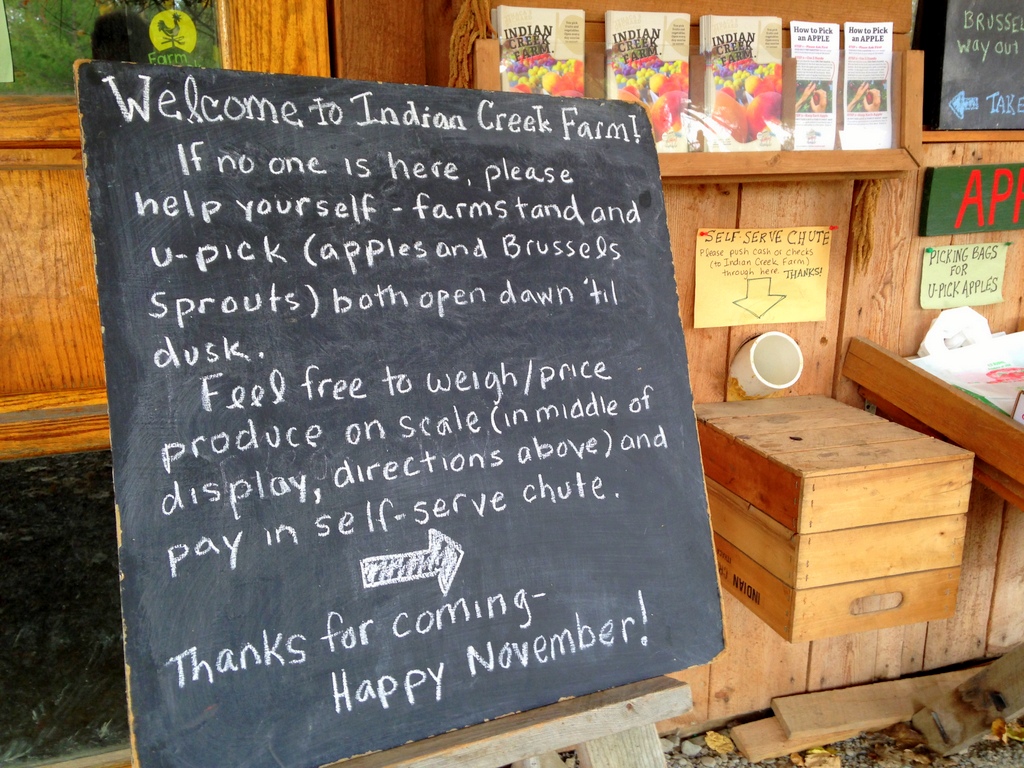 Welcome to Indian Creek Farm!
If no one is here, please
help yourself - farmstand and
u-pick (apples and Brussels
Sprouts) both open dawn 'til
dusk.
Feel free to weigh/price
produce on scale (in middle of
display, directions above) and
pay in self-serve chute.
Thanks for coming-
Happy November!
Farm
INDIAN
CREEK
FARM
INDIAN
CREEK
FARM
INDIAN
CREEK
FARM
How to Pick
an APPLE
How to Pick
an APPLE
BRUSSEL
way out
TAKE
SELF SERVE CHUTE
Please push cash or checks
(to Indian Creek Farm)
through here. THANKS!
APP
PICKING BAGS
FOR
U-PICK APPLES
INDIAN